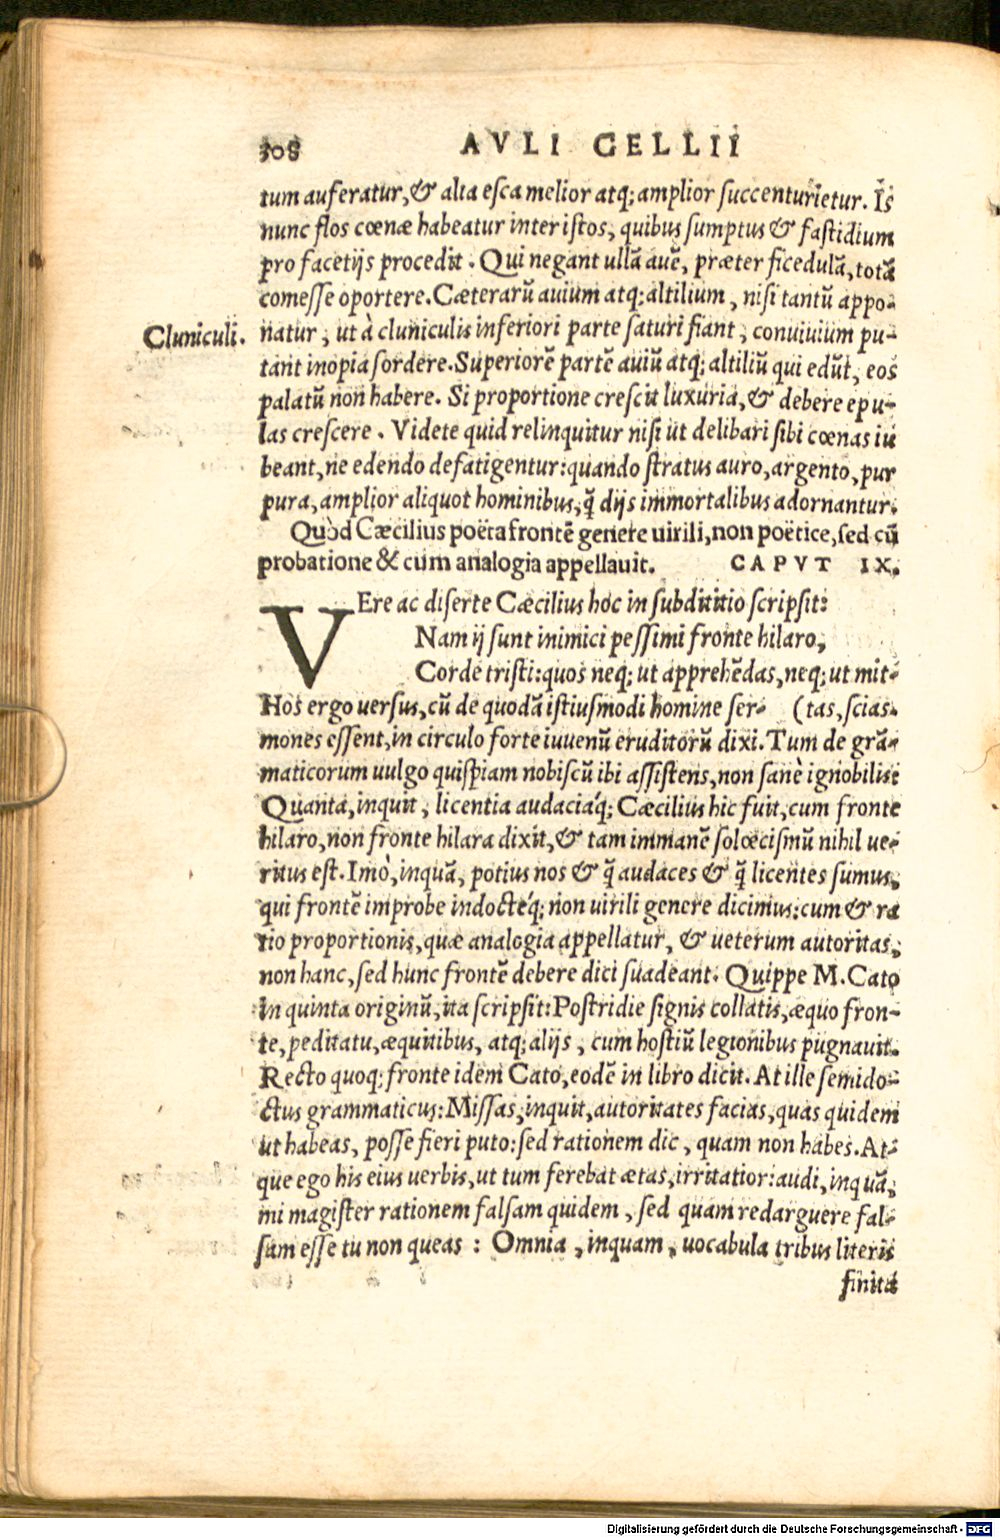 308 AVLI GELLII
tum auferatur, & alia esca melior atq; amplior succenturietur. Is
nunc flos cœnæ habeatur inter istos, quibus sumptus & fastidium
pro facetijs procedit. Qui negant ullā auē, præter ficedulā, totā
comesse oportere. Cæterarū auium atq; altilium, nisi tantū appo-
Cluniculi. natur, ut à cluniculis inferiori parte saturi fiant, conuiuium pu-
tant inopia sordere. Superiorē partē auiū atq; altiliū qui edūt, eos
palatū non habere. Si proportione crescit luxuria, & debere epu-
las crescere. Videte quid relinquitur nisi ut delibari sibi cœnas iu
beant, ne edendo defatigentur: quando stratus auro, argento, pur
pura, amplior aliquot hominibus, q̄ dijs immortalibus adornantur.
Quòd Cæcilius poëta frontē genere uirili, non poëtice, sed cū
probatione & cum analogia appellauit. CAPVT IX.
VEre ac diserte Cæcilius hoc in subdititio scripsit:
Nam ij sunt inimici pessimi fronte hilaro,
Corde tristi: quos neq; ut apprehēdas, neq; ut mit-
Hos ergo uersus, cū de quodā istiusmodi homine ser- (tas, scias.
mones essent, in circulo forte iuuenū eruditorū dixi. Tum de grā-
maticorum uulgo quispiam nobiscū ibi assistens, non sanè ignobilis:
Quanta, inquit, licentia audaciáq; Cæcilius hic fuit, cum fronte
hilaro, non fronte hilara dixit, & tam immanē solœcismū nihil ue-
ritus est. Imò, inquā, potius nos & q̄ audaces & q̄ licentes sumus,
qui frontē improbe indoctéq; non uirili genere dicimus: cum & ra
tio proportionis, quæ analogia appellatur, & ueterum autoritas,
non hanc, sed hunc frontē debere dici suadeant. Quippe M. Cato
in quinta originū, ita scripsit: Postridie signis collatis, æquo fron-
te, peditatu, æquitibus, atq; alijs, cum hostiū legionibus pugnauit.
Recto quoq; fronte idem Cato, eodē in libro dicit. At ille semido-
ctus grammaticus: Missas, inquit, autoritates facias, quas quidem
ut habeas, posse fieri puto: sed rationem dic, quam non habes. At-
que ego his eius uerbis, ut tum ferebat ætas, irritatior: audi, inquā,
mi magister rationem falsam quidem, sed quam redarguere fal-
sam esse tu non queas: Omnia, inquam, uocabula tribus literis
finita
Digitalisierung gefördert durch die Deutsche Forschungsgemeinschaft - DFG